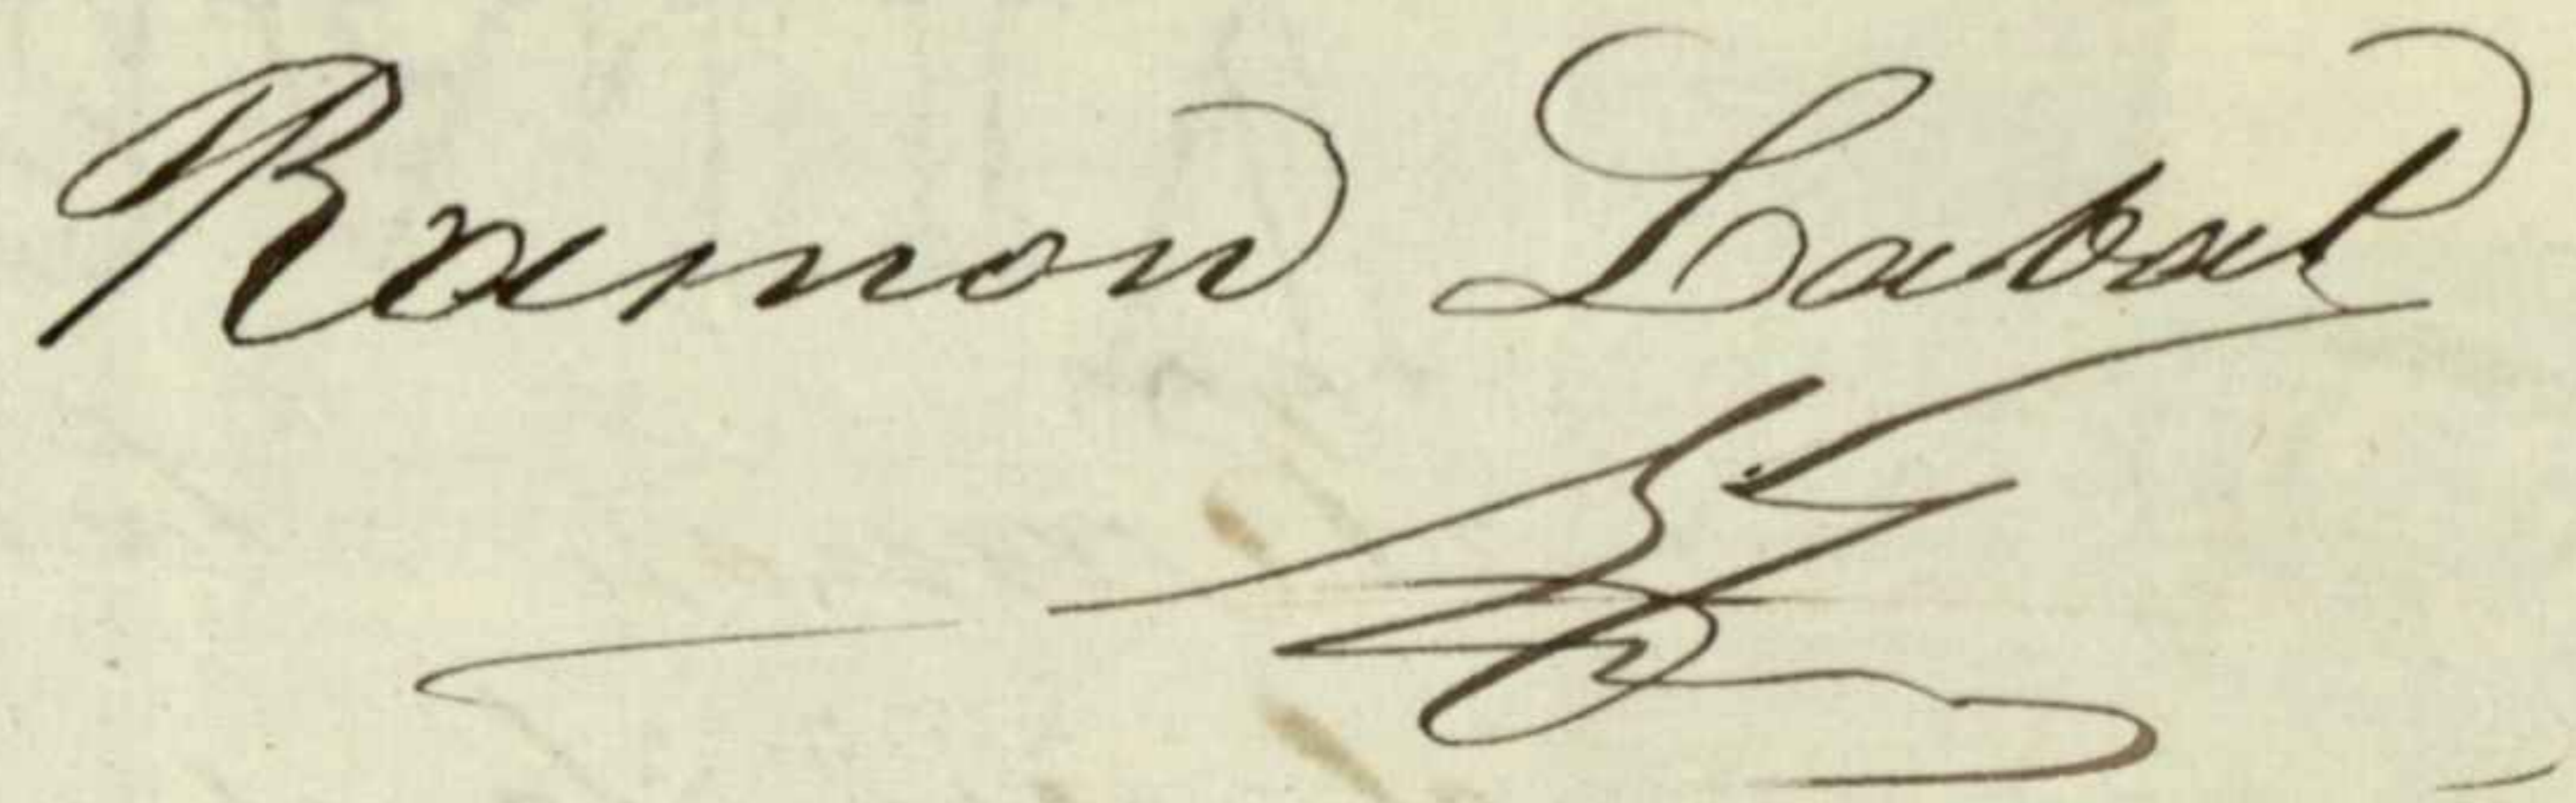 Ramon Labat